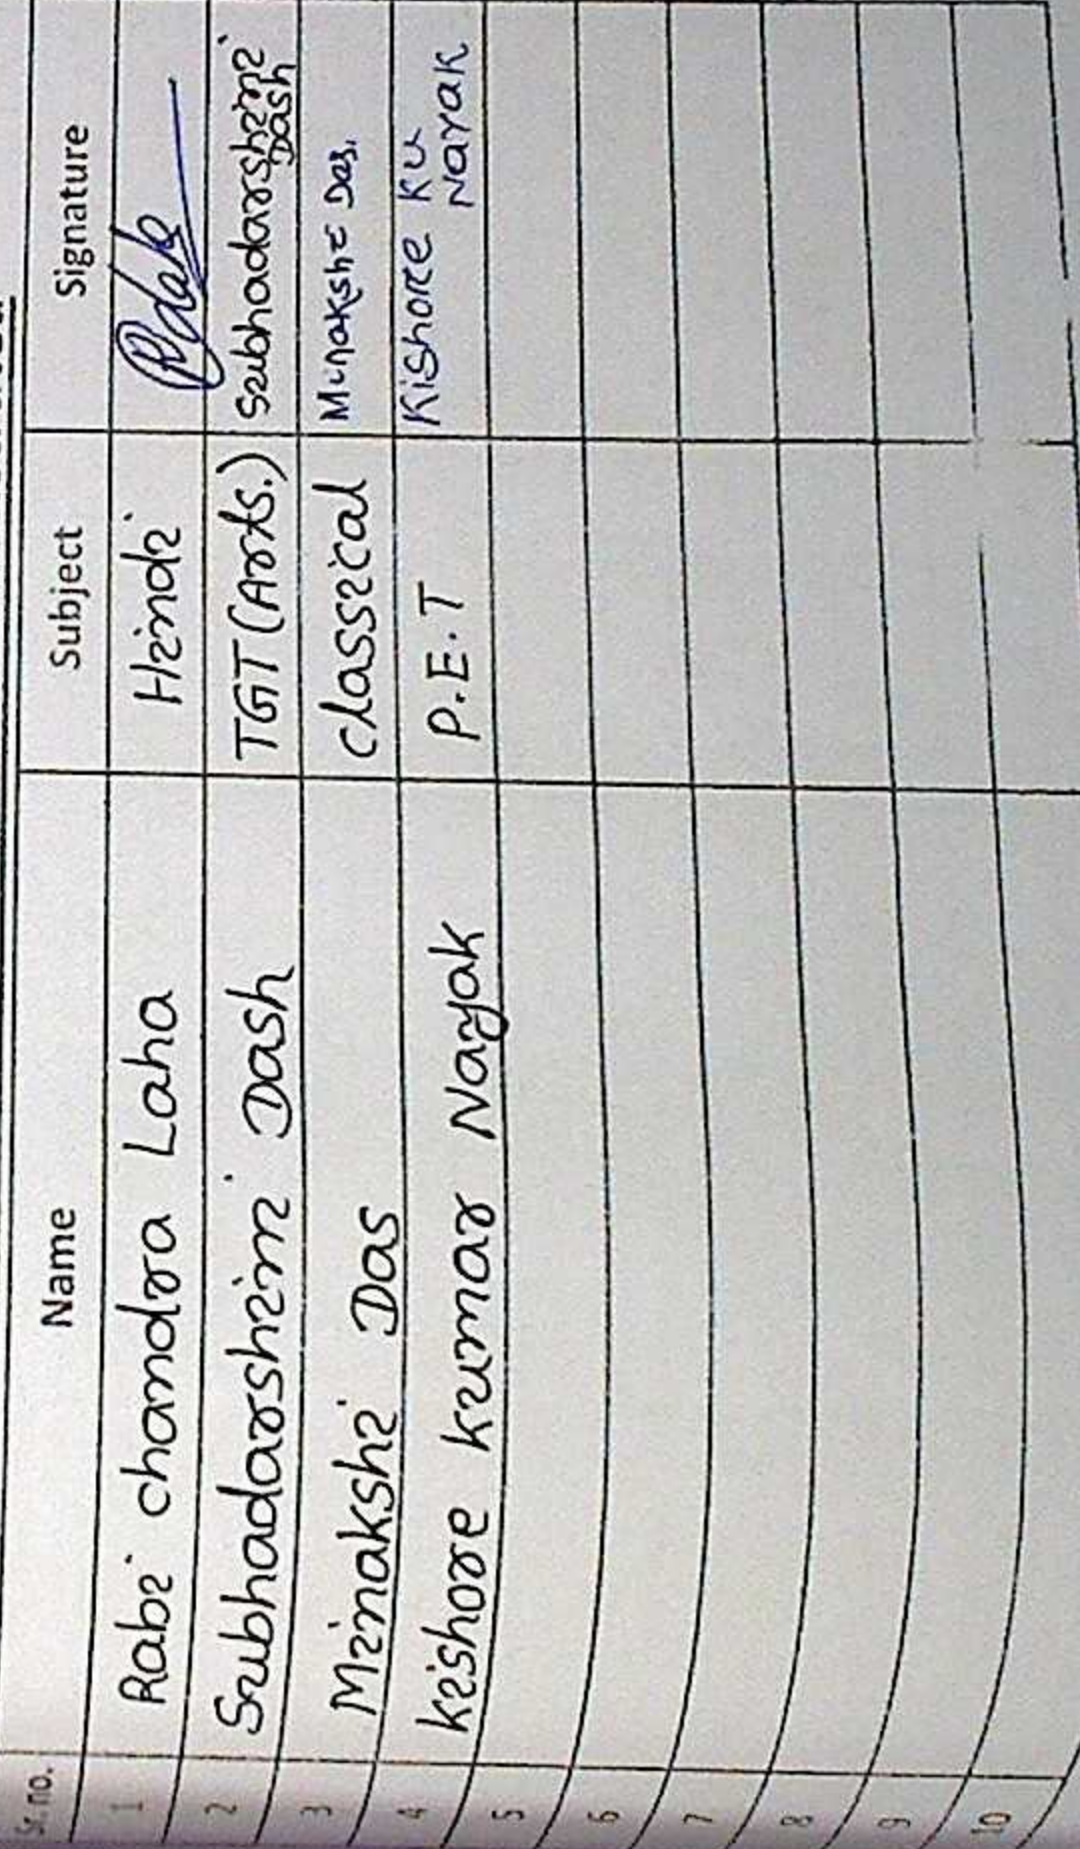 Sr. no. Name Subject Signature
1 Rabi chandra Laha Hindi
2 Subhadarshini Dash TGT (Arts.) Subhadarshini Dash
3 Minakshi Das classical Minakshi Das.
4 Kishore kumar Nayak P.E.T Kishore Ku Nayak
5
6
7
8
9
10